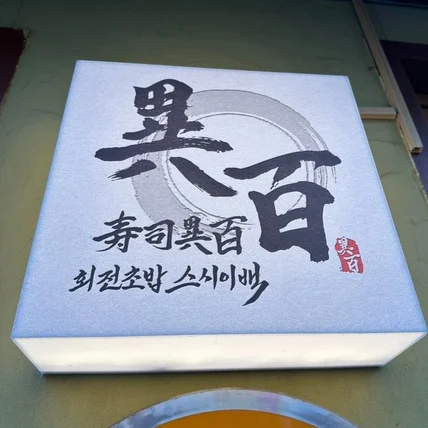 異百
寿司異百
회전초밥 스시이백
異百